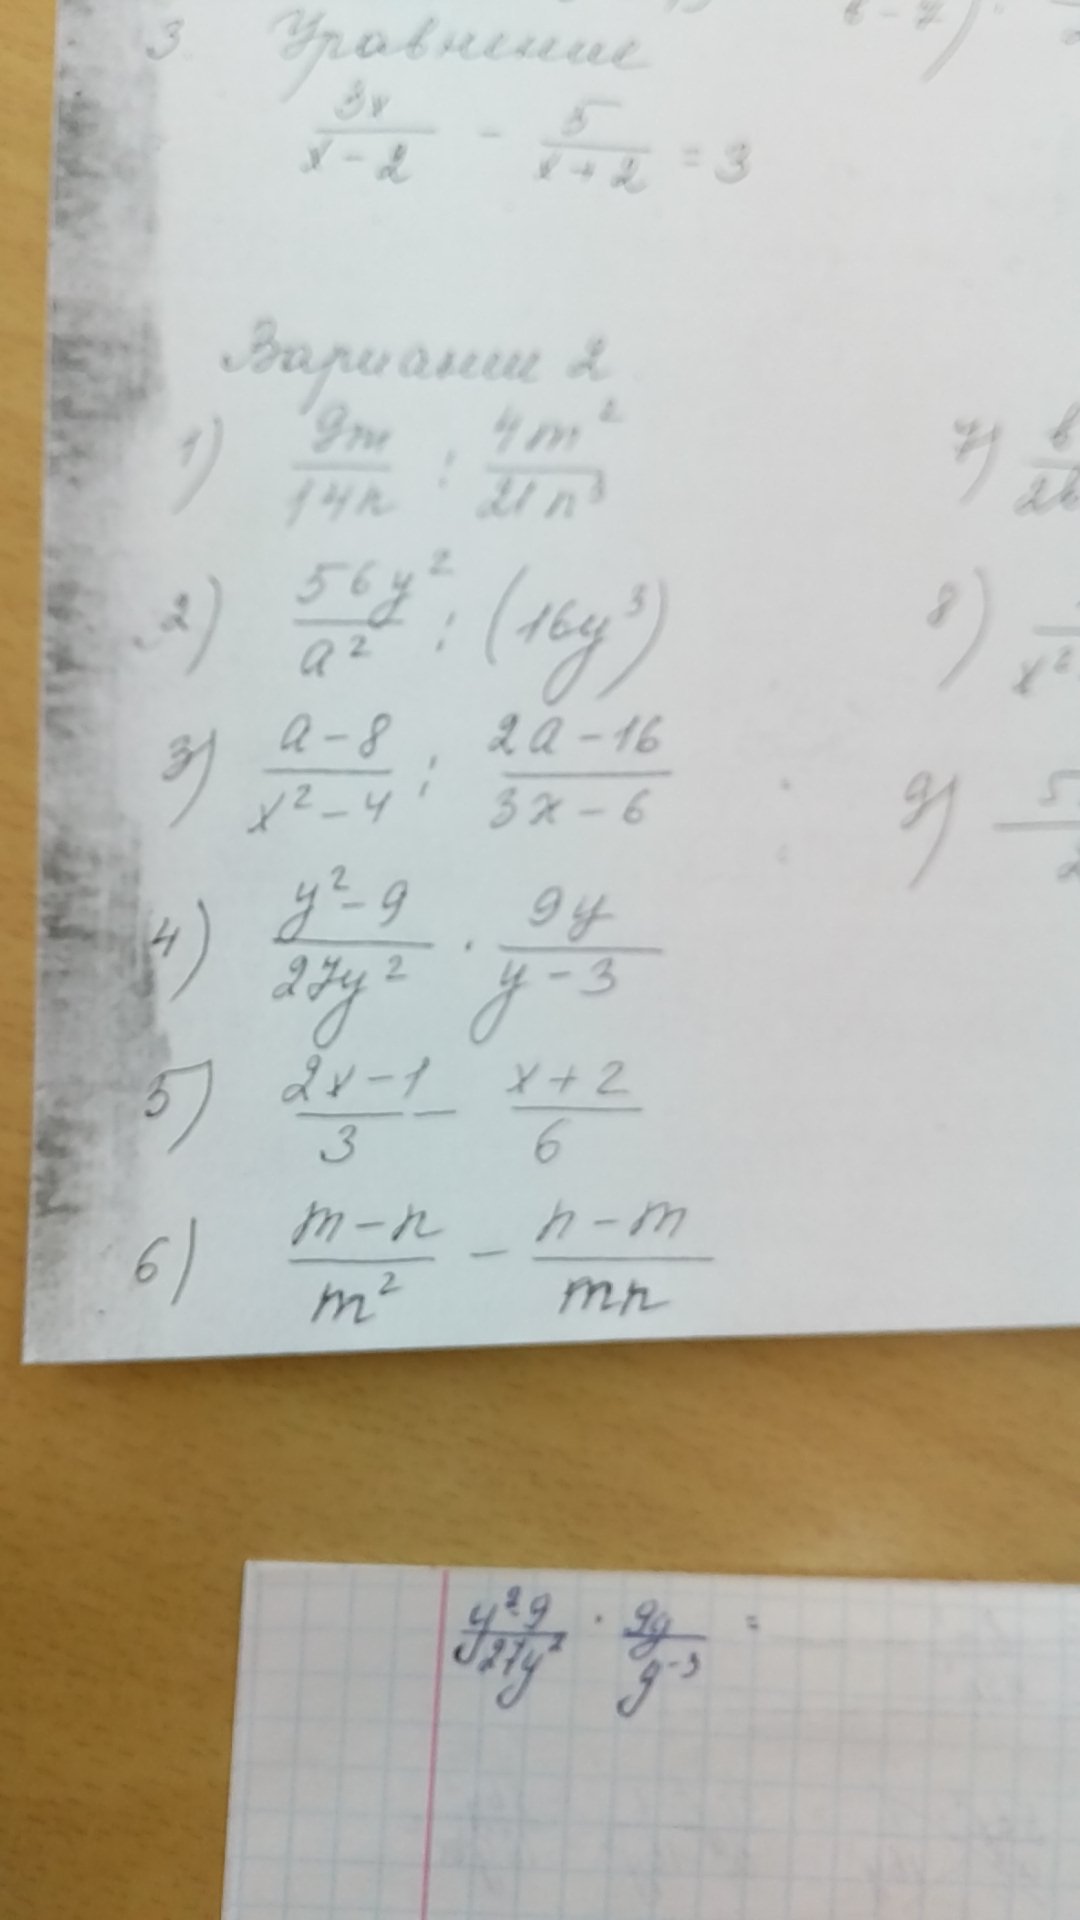 в - 7)
3. Уравнение
3x/(x - 2) - 5/(x + 2) = 3
Вариант 2
1) 9m/14n : 4m²/21n³
2) 56y²/a² : (16y³)
3) (a - 8)/(x² - 4) : (2a - 16)/(3x - 6)
4) (y² - 9)/27y² · 9y/(y - 3)
5) (2x - 1)/3 - (x + 2)/6
6) (m - n)/m² - (n - m)/mn
7) в/2в
8) x²
9) 5/2
y²-9/27y² · 9y/y-3 =